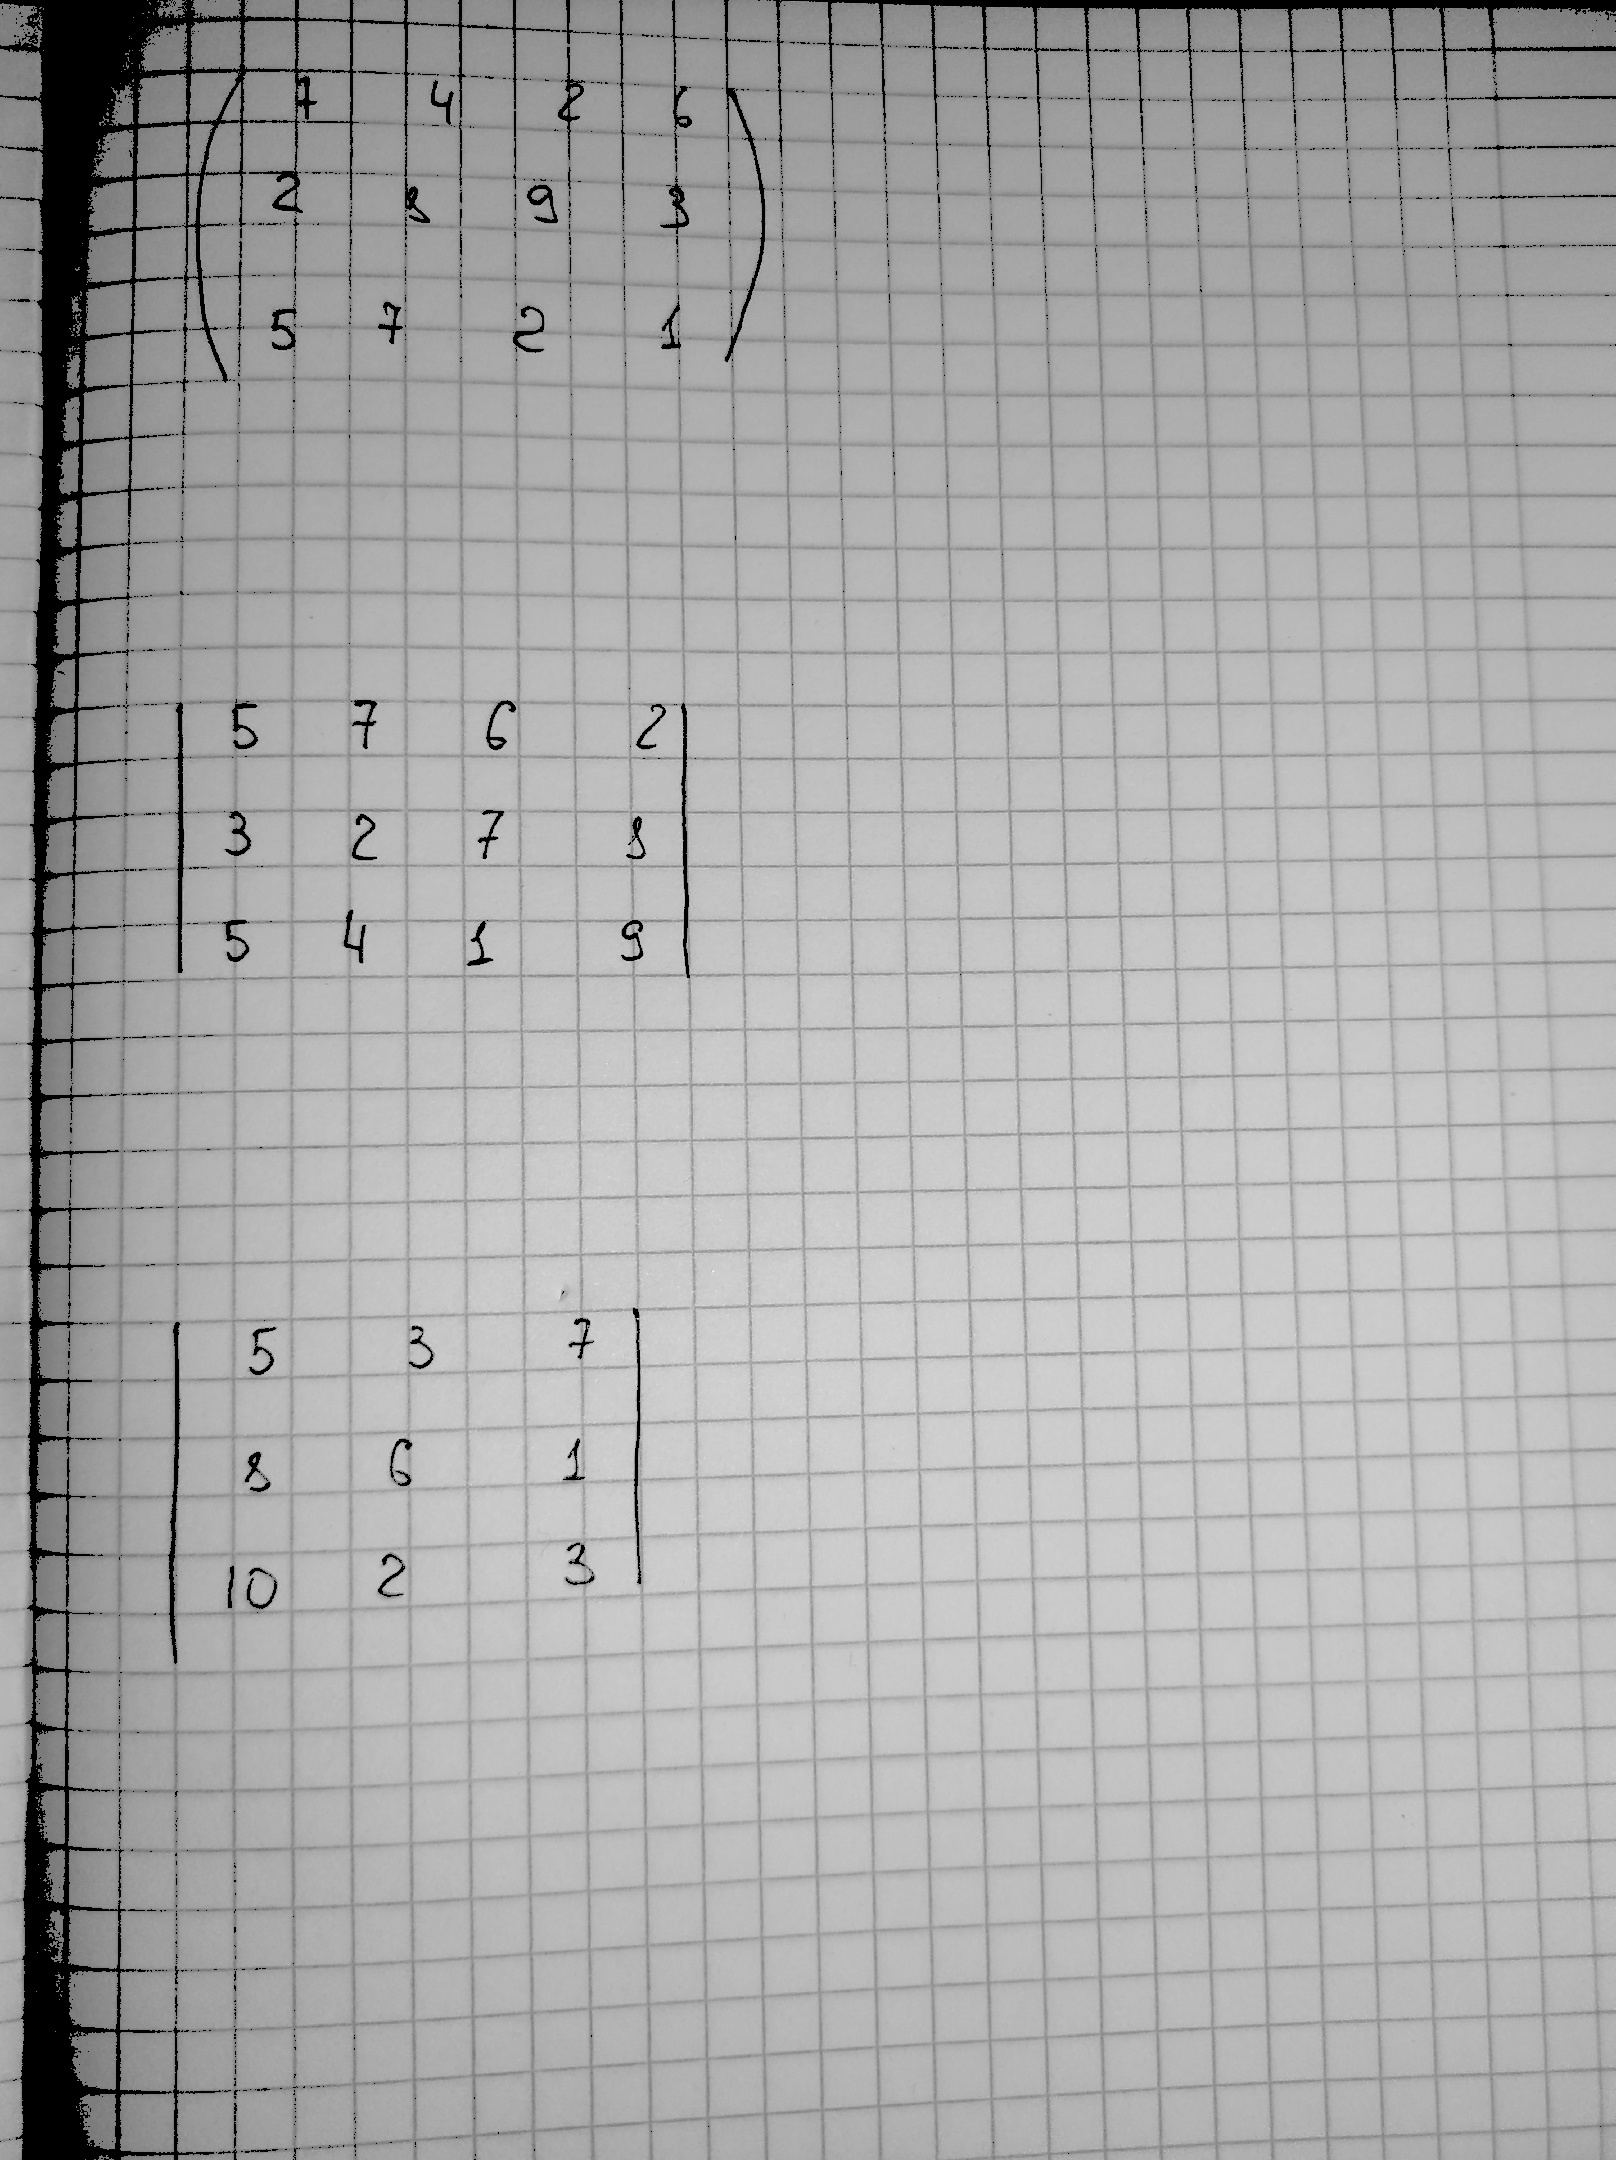 7 4 2 6
2 8 9 3
5 7 2 1
5 7 6 2
3 2 7 8
5 4 1 9
5 3 7
8 6 1
10 2 3